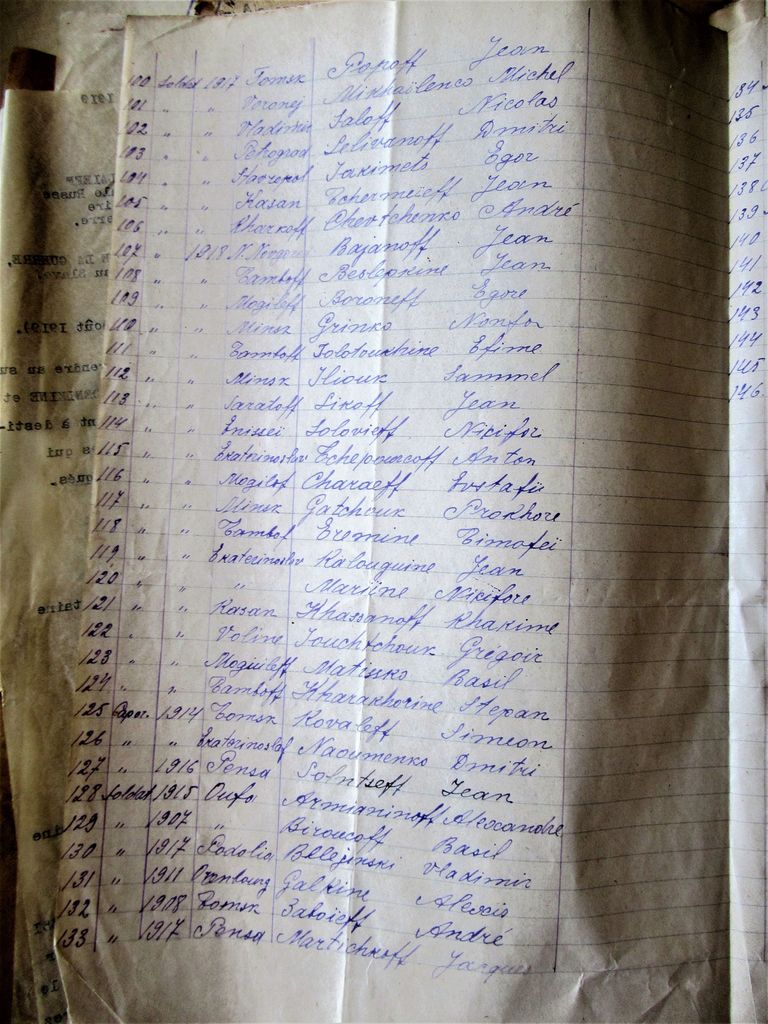 100 Soldat 1917 Tomsk Popoff Jean
101 " " Voronej Mikhaïlenco Michel
102 " " Vladimir Saloff Nicolas
103 " " Petrograd Selivanoff Dmitri
104 " " Stavropol Iakimets Egor
105 " " Kasan Tchermeïeff Jean
106 " " Kharkoff Chevtchenko André
107 " 1918 N. Bajanoff Jean
108 " " Tamboff Beslepkine Jean
109 " " Mogileff Boroneff Egore
110 " " Minsk Grinko
111 " " Tamboff Solotoukhine Efime
112 " " Minsk Iliouk Sammel
113 " " Saratoff Sikoff Jean
114 " " Enisseï Solovieff Nicifor
115 " " Ekaterinoslav Anton
116 " " Mogilef Charaeff Evstafii
117 " " Minsk Gatchouk Prokhore
118 " " Tambof Eremine Timofeï
119 " " Ekaterinoslav Kalouguine Jean
120 " " " Mariine Nicifore
121 " " Kasan Khassanoff Khakime
122 " " Voline Iouchtchouk Grégoir
123 " " Moguileff Matisko Basil
124 " " Tamboff Kharakhorine Stepan
125 Capor. 1914 Tomsk Kovaleff Simeon
126 " " Ekaterinoslaf Naoumenko Dmitri
127 " 1916 Pensa Solntseff Jean
128 Soldat 1915 Oufa Armianinoff Alexandre
129 " 1907 " Biroucoff Basil
130 " 1917 Podolia Bblejinski Vladimir
131 " 1911 Orenbourg Galkine Alexis
132 " 1908 Tomsk Saboïeff André
133 " 1917 Pensa Martichkoff Jacques
134
135
136
137
138
139
140
141
142
143
144
145
146
1919
le Russe
oût 1919).
endre au su
nt à desti-
s qui
qués.
taire